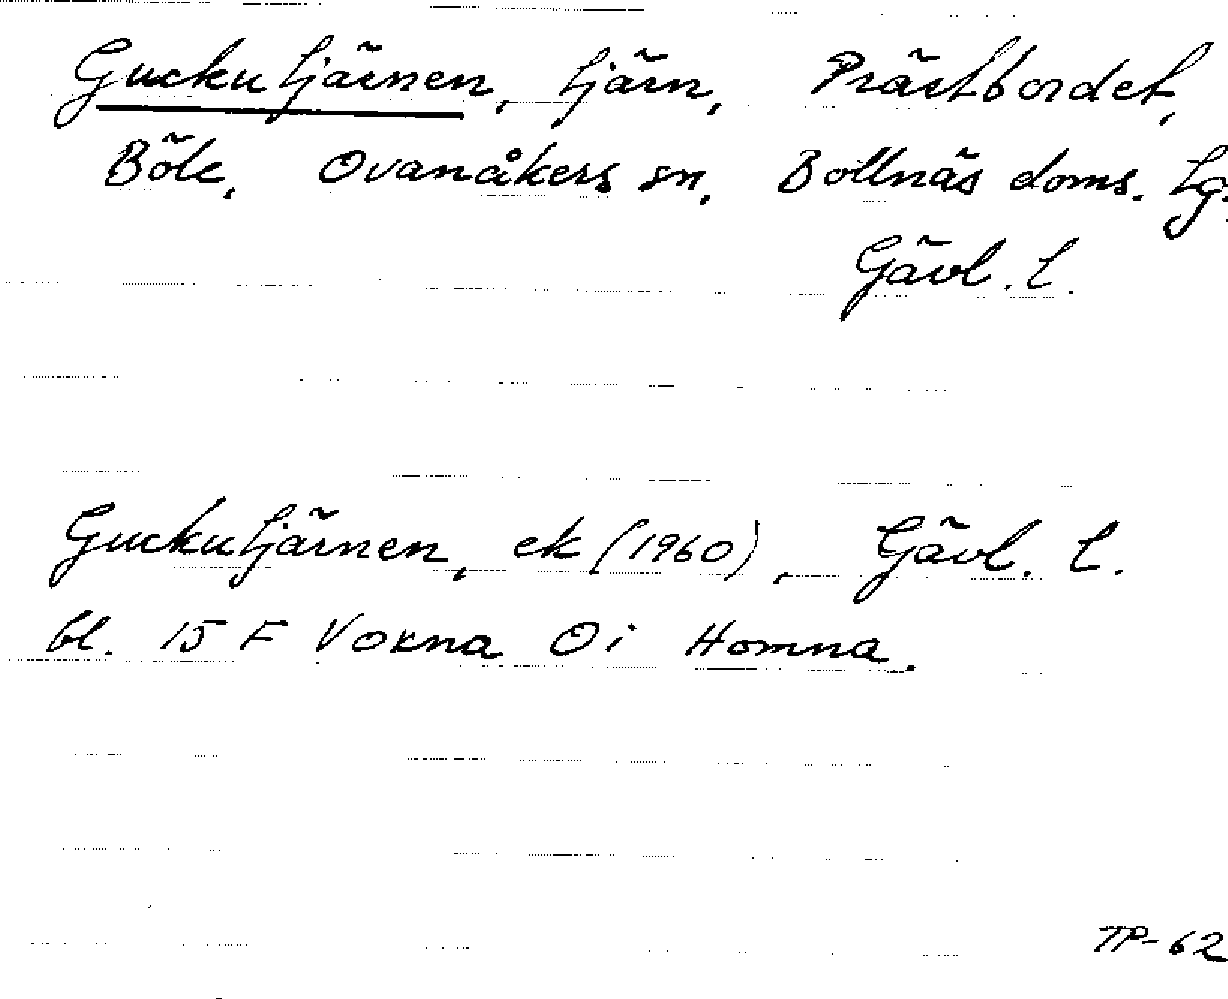 Guckutjärnen, tjärn, Prästbordet,
Böle, Ovanåkers sn, Bollnäs doms. Lg.
Gävl. l.
Guckutjärnen, ek (1960), Gävl. l.
bl. 15 F Voxna Oi Homna.
TP-62